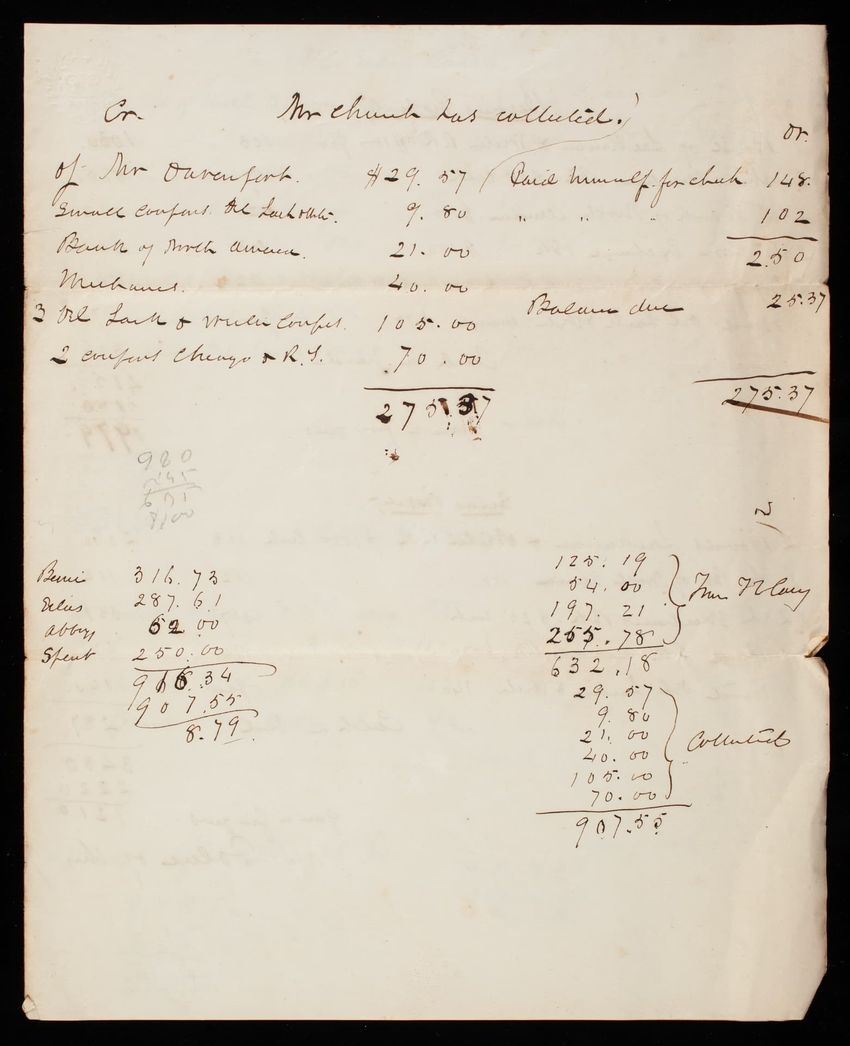 Cr. Mr Church has collected.
Dr.
of Mr Davenport. $29.57 Paid himself for check 148.
Small coupons Del Lack & 9.80 " " " 102
Bank of North America. 21.00 250
Mechanics. 40.00
Balance due 25.37
3 Del Lack & Western Coupns. 105.00
2 coupons Chicago & R.I. 70.00
275.37 275.37
980
Benni 316.73
Elias 287.61
Abbys 52.00
Spent 250.00
916.34
907.55
8.79
125.19
54.00
197.21
255.78
From
632.18
29.57
9.80
21.00
40.00
105.00
70.00
Collected
907.55